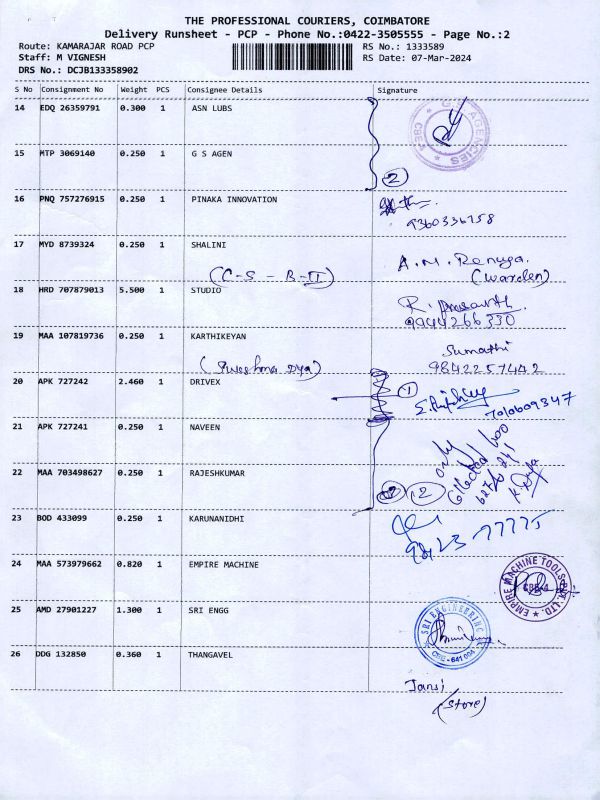 THE PROFESSIONAL COURIERS, COIMBATORE
Delivery Runsheet - PCP - Phone No.:0422-3505555 - Page No.:2
Route: KAMARAJAR ROAD PCP RS No.: 1333589
Staff: M VIGNESH RS Date: 07-Mar-2024
DRS No.: DCJB133358902
S No Consignment No Weight PCS Consignee Details Signature
14 EDQ 26359791 0.300 1 ASN LUBS
G.S. AGENCIES
15 MTP 3069140 0.250 1 G S AGEN
2
16 PNQ 757276915 0.250 1 PINAKA INNOVATION
9360336758
17 MYD 8739324 0.250 1 SHALINI
A.M. Renuga.
(C-S-B-II) (Warden)
18 HRD 707879013 5.500 1 STUDIO
R. Prasanth.
9944266330
19 MAA 107819736 0.250 1 KARTHIKEYAN
Sumathi
9842257442
20 APK 727242 2.460 1 DRIVEX
1
7010609347
21 APK 727241 0.250 1 NAVEEN
only
collected
22 MAA 703498627 0.250 1 RAJESHKUMAR
2
23 BOD 433099 0.250 1 KARUNANIDHI
24 MAA 573979662 0.820 1 EMPIRE MACHINE
EMPIRE MACHINE TOOLS PVT. LTD.
25 AMD 27901227 1.300 1 SRI ENGG
SRI ENGINEERING
CBE - 641 004
26 DDG 132850 0.360 1 THANGAVEL
Jansi
(Store)